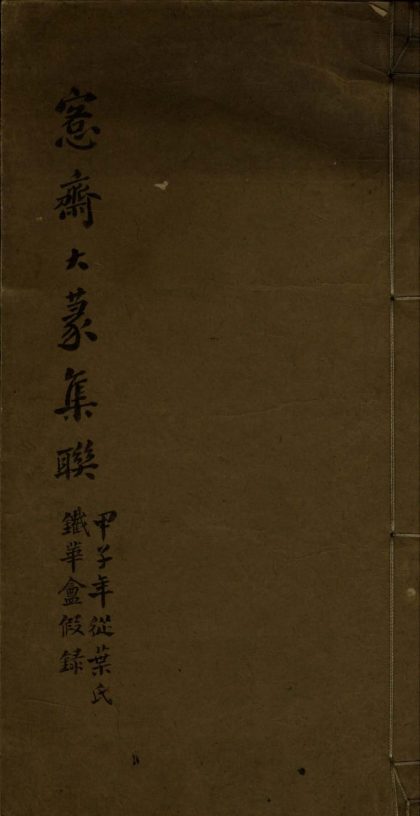 愙齋大篆集聯
甲子年從葉氏
鐵華盦假録